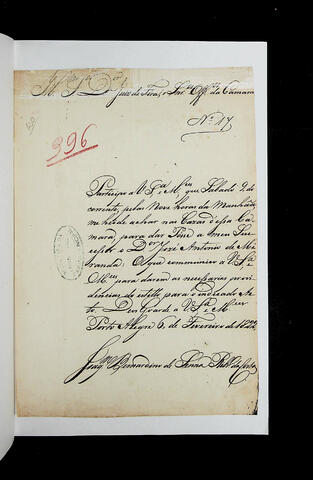 Juiz de Fora, e da Camara
Nº 17
396
Participo a V. Sª e M.ces que Sabado 9 do
corrente, pelas Nove horas da Manhã,
me hei de achar nas Casas d'essa Ca-
mara, para dar Posse a meu Suc-
cessor o Dor José Antonio de Mi-
randa: O que communico a V. Sª e
M.ces para darem as necessarias provi-
dencias do estillo para o indicado Ac-
to. Deos Guarde a V. Sª e M.ces
Porto Alegre 6 de Fevereiro de 1822
Joaqm Bernardino de Senna Ribro da Costa